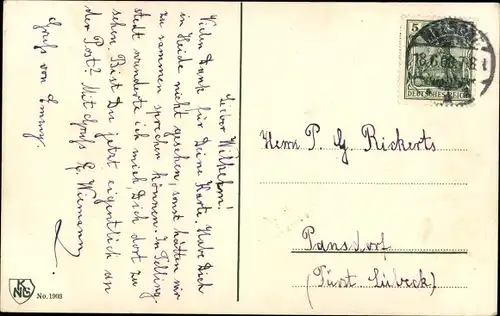 Lieber Wilhelm!
Vielen Dank für Deine Karte. Habe Dich
in Heide nicht gesehen, sonst hätten wir
zusammen sprechen können. In Telling-
stedt wunderte ich mich, Dich dort zu
sehen. Bist Du jetzt eigentlich an
der Post? Mit Gruß E. Wiemann
Gruß von Emmy.
5
DEUTSCHES REICH
Herrn P. G Rickerts
Pansdorf
(Fürst Lübeck)
K N G
No. 1903